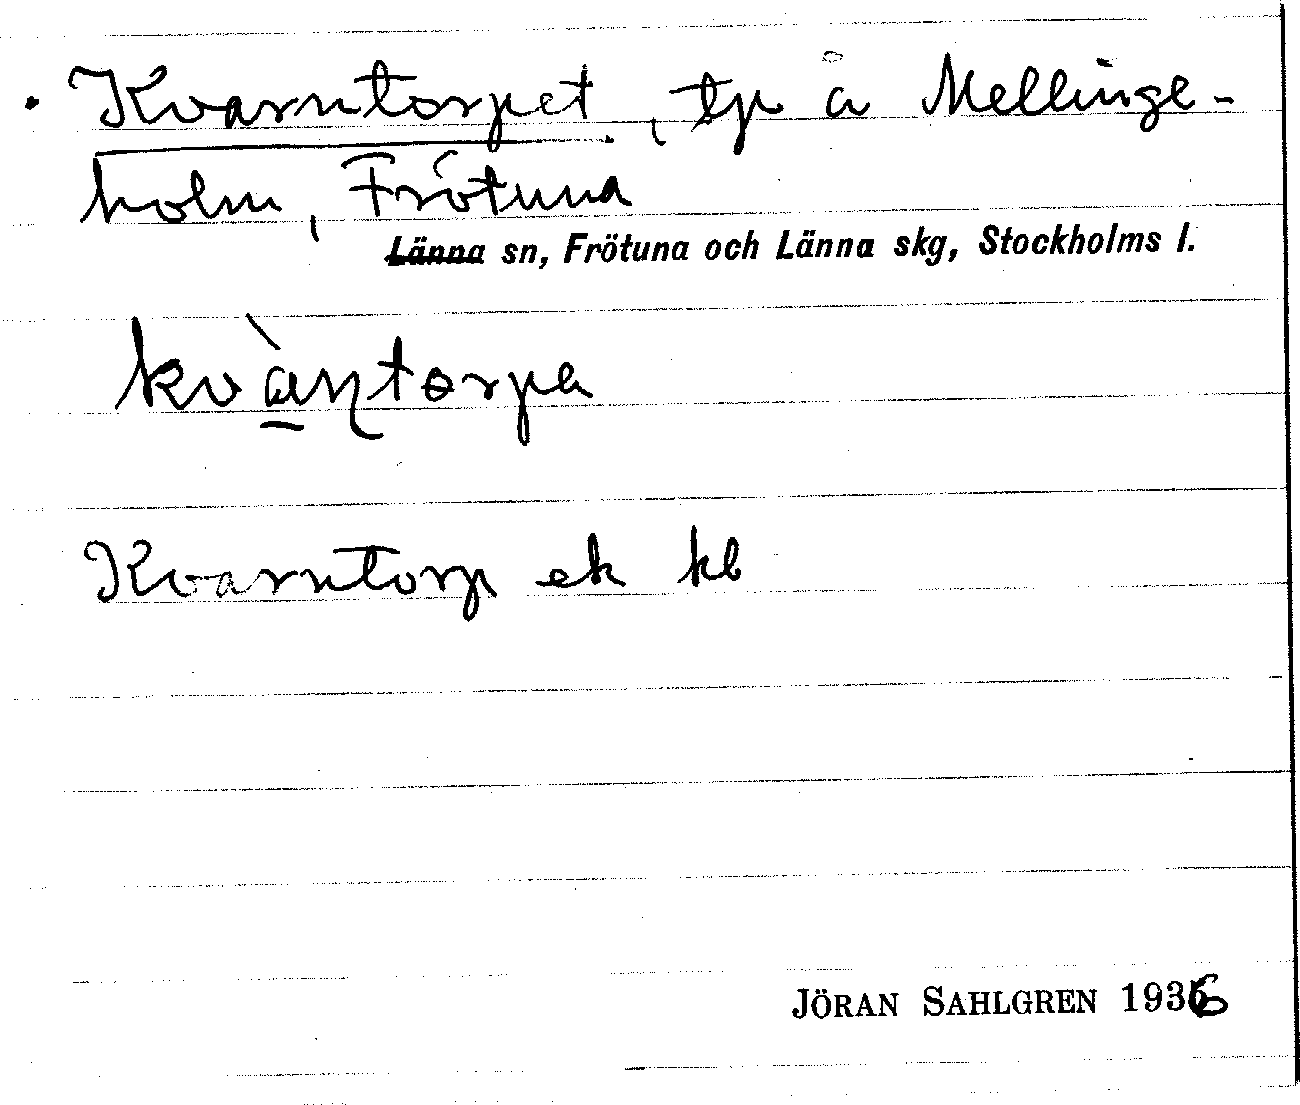 Kvarntorpet, tp å Mellinge-
holm, Frötuna
Länna sn, Frötuna och Länna skg, Stockholms l.
kvàɳtorpa
Kvarntorp ek kb
JÖRAN SAHLGREN 1936